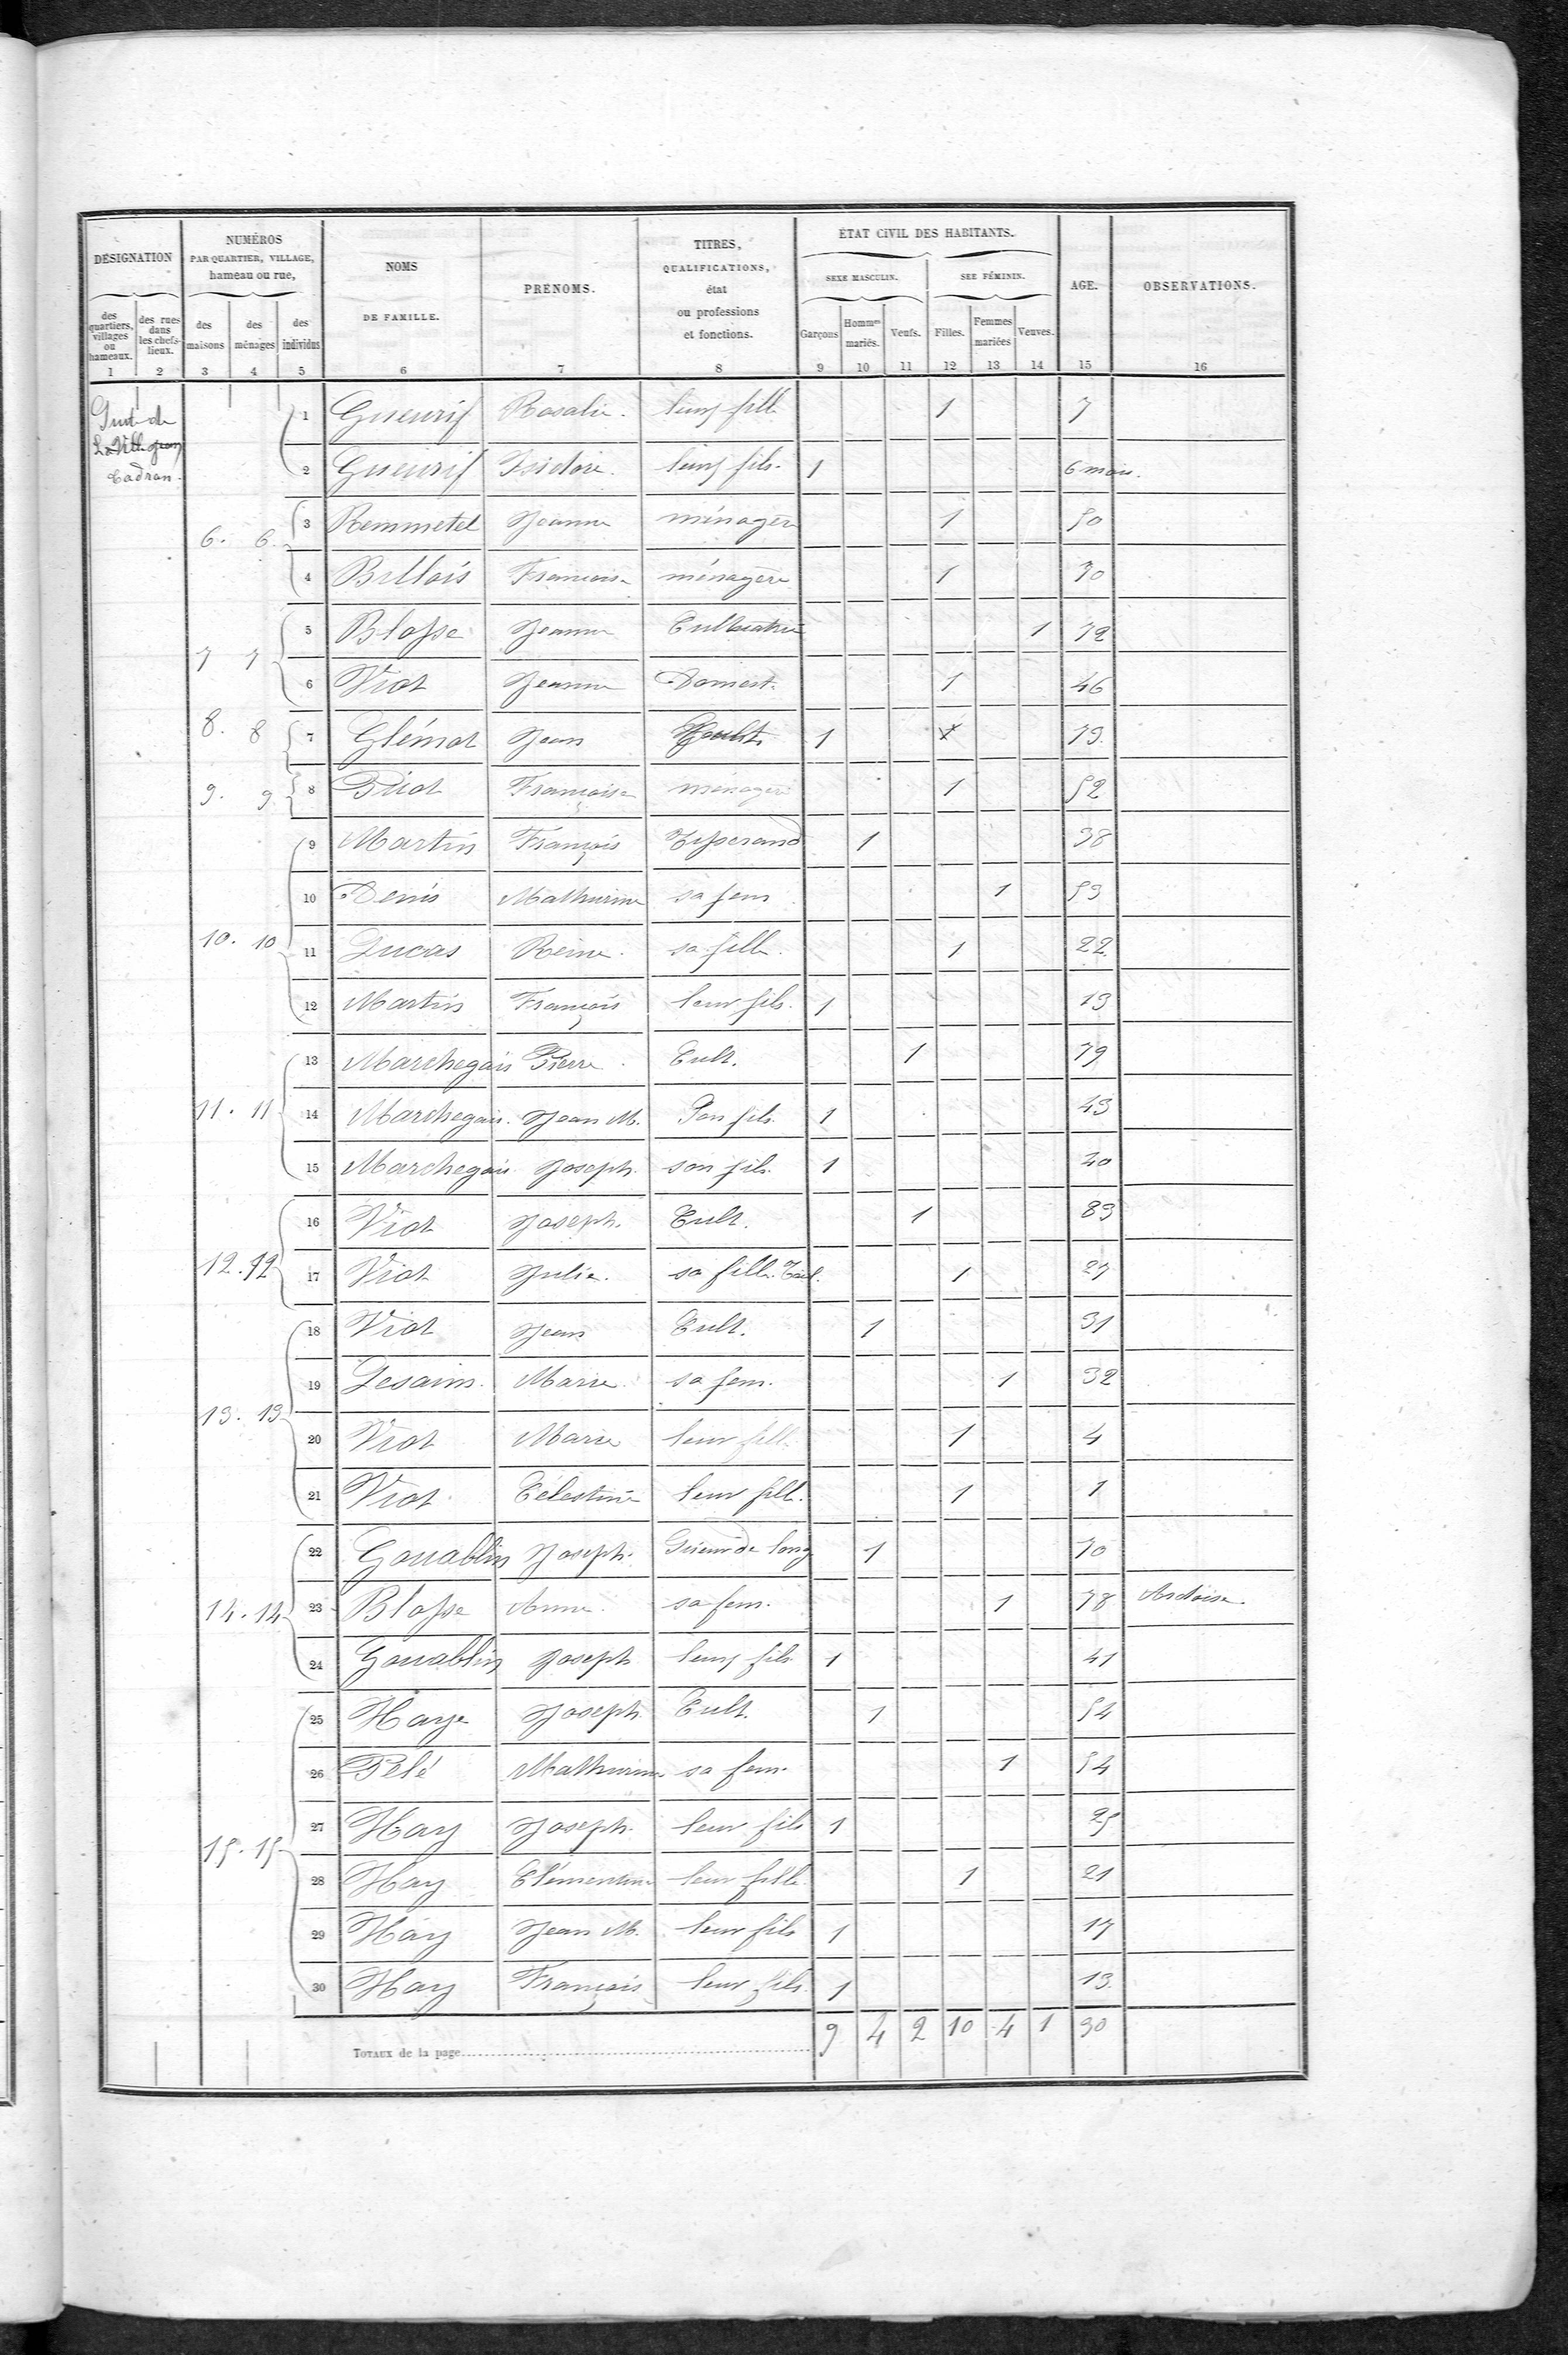 DÉSIGNATION
NUMÉROS PAR QUARTIER, VILLAGE, hameau ou rue,
NOMS DE FAMILLE.
PRÉNOMS.
TITRES, QUALIFICATIONS, état ou professions et fonctions.
ÉTAT CIVIL DES HABITANTS.
SEXE MASCULIN.
SEE FÉMININ.
AGE.
OBSERVATIONS.
des quartiers, villages ou hameaux.
des rues dans les chefs-lieux.
des maisons
des ménages
des individus
Garçons
Hommes mariés.
Veufs.
Filles.
Femmes mariées
Veuves.
1 2 3 4 5 6 7 8 9 10 11 12 13 14 15 16
Suite de
La Ville Jean
Cadran.
1 Gueurif Rosalie. leur fille 1 7
2 Gueurif Isidore. leur fils. 1 6 mois.
6. 6.
3 Remmetel Jeanne ménagère 1 50
4 Billois Françoise ménagère 1 70
7 7
5 Blosse Jeanne Cultivatrice 1 72
6 Viot Jeanne Domest. 1 46
8. 8 7 Glémot Jean 1 1 79.
9. 9 8 Briot Françoise ménagère 1 52
9 Martin François Tisserand 1 38
10 Denis Mathurine sa fem 1 53
10. 10
11 Lucas Reine. sa fille. 1 22
12 Martin François leur fils. 1 13
13 Marchegais Pierre. Cult. 1 79
11. 11
14 Marchegais. Jean M. Son fils. 1 43
15 Marchegais Joseph. son fils. 1 40
16 Viot Joseph. Cult. 1 83
12. 12
17 Viot Julie. sa fille. Tail. 1 27
18 Viot Jean Cult. 1 31
19 Lesaim. Marie. sa fem. 1 32
13. 13
20 Viot Marie leur fille 1 4
21 Viot. Célestine leur fille. 1 1
22 Gouablin Joseph. Scieur de long 1 70
14. 14
23 Blosse Anne. sa fem. 1 78 Ardoise.
24 Gouablin Joseph leur fils 1 41
25 Haye Joseph Cult. 1 54
26 Pelé Mathurine sa fem. 1 54
27 Hay Joseph. leur fils 1 25
15. 15
28 Hay Clémentine leur fille 1 21
29 Hay Jean M. leur fils 1 17
30 Hay François leur fils. 1 13
TOTAUX de la page 9 4 2 10 4 1 30